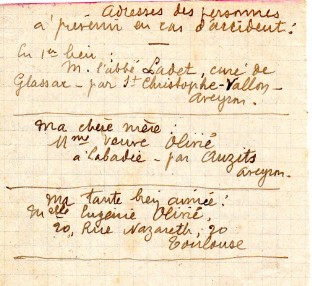 Adresses des personnes
à prévenir en cas d'accident :
En 1er lieu :
M. l'abbé Ladet, curé de
Glassac - par St Christophe-Vallon -
Aveyron.
Ma chère mère :
Mme Veuve Olivié
à Labadie - par Auzits
Aveyron.
Ma tante bien aimée :
Melle Eugénie Olivié,
20, Rue Nazareth, 20
Toulouse